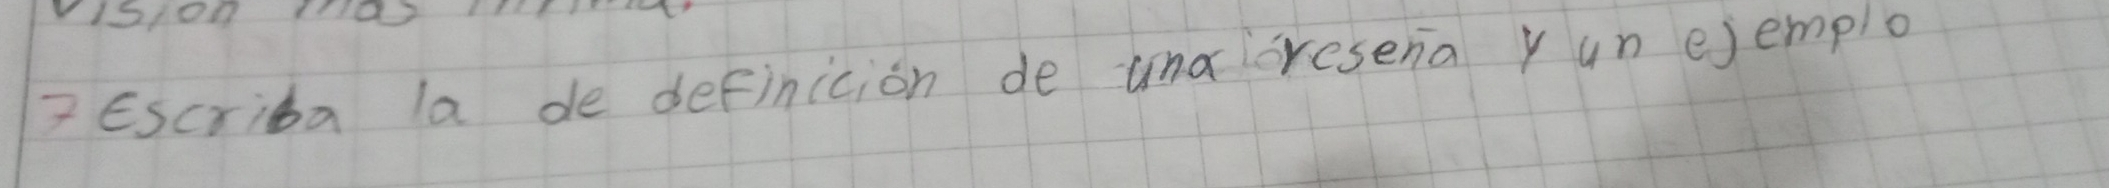 visión más
7 Escriba la de definición de una reseña y un ejemplo